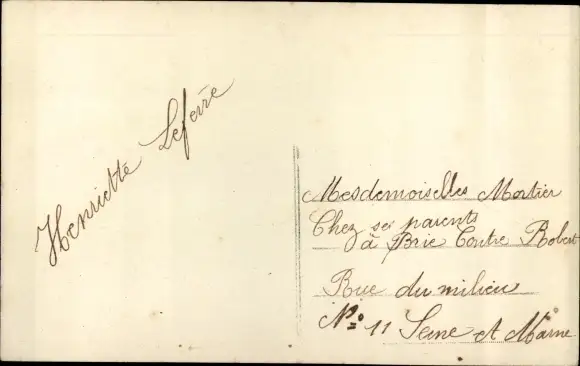 Henriette Lefevre
Mesdemoiselles Mortier
Chez ses parents
à Brie Comte Robert
Rue du milieu
No 11 Seine et Marne